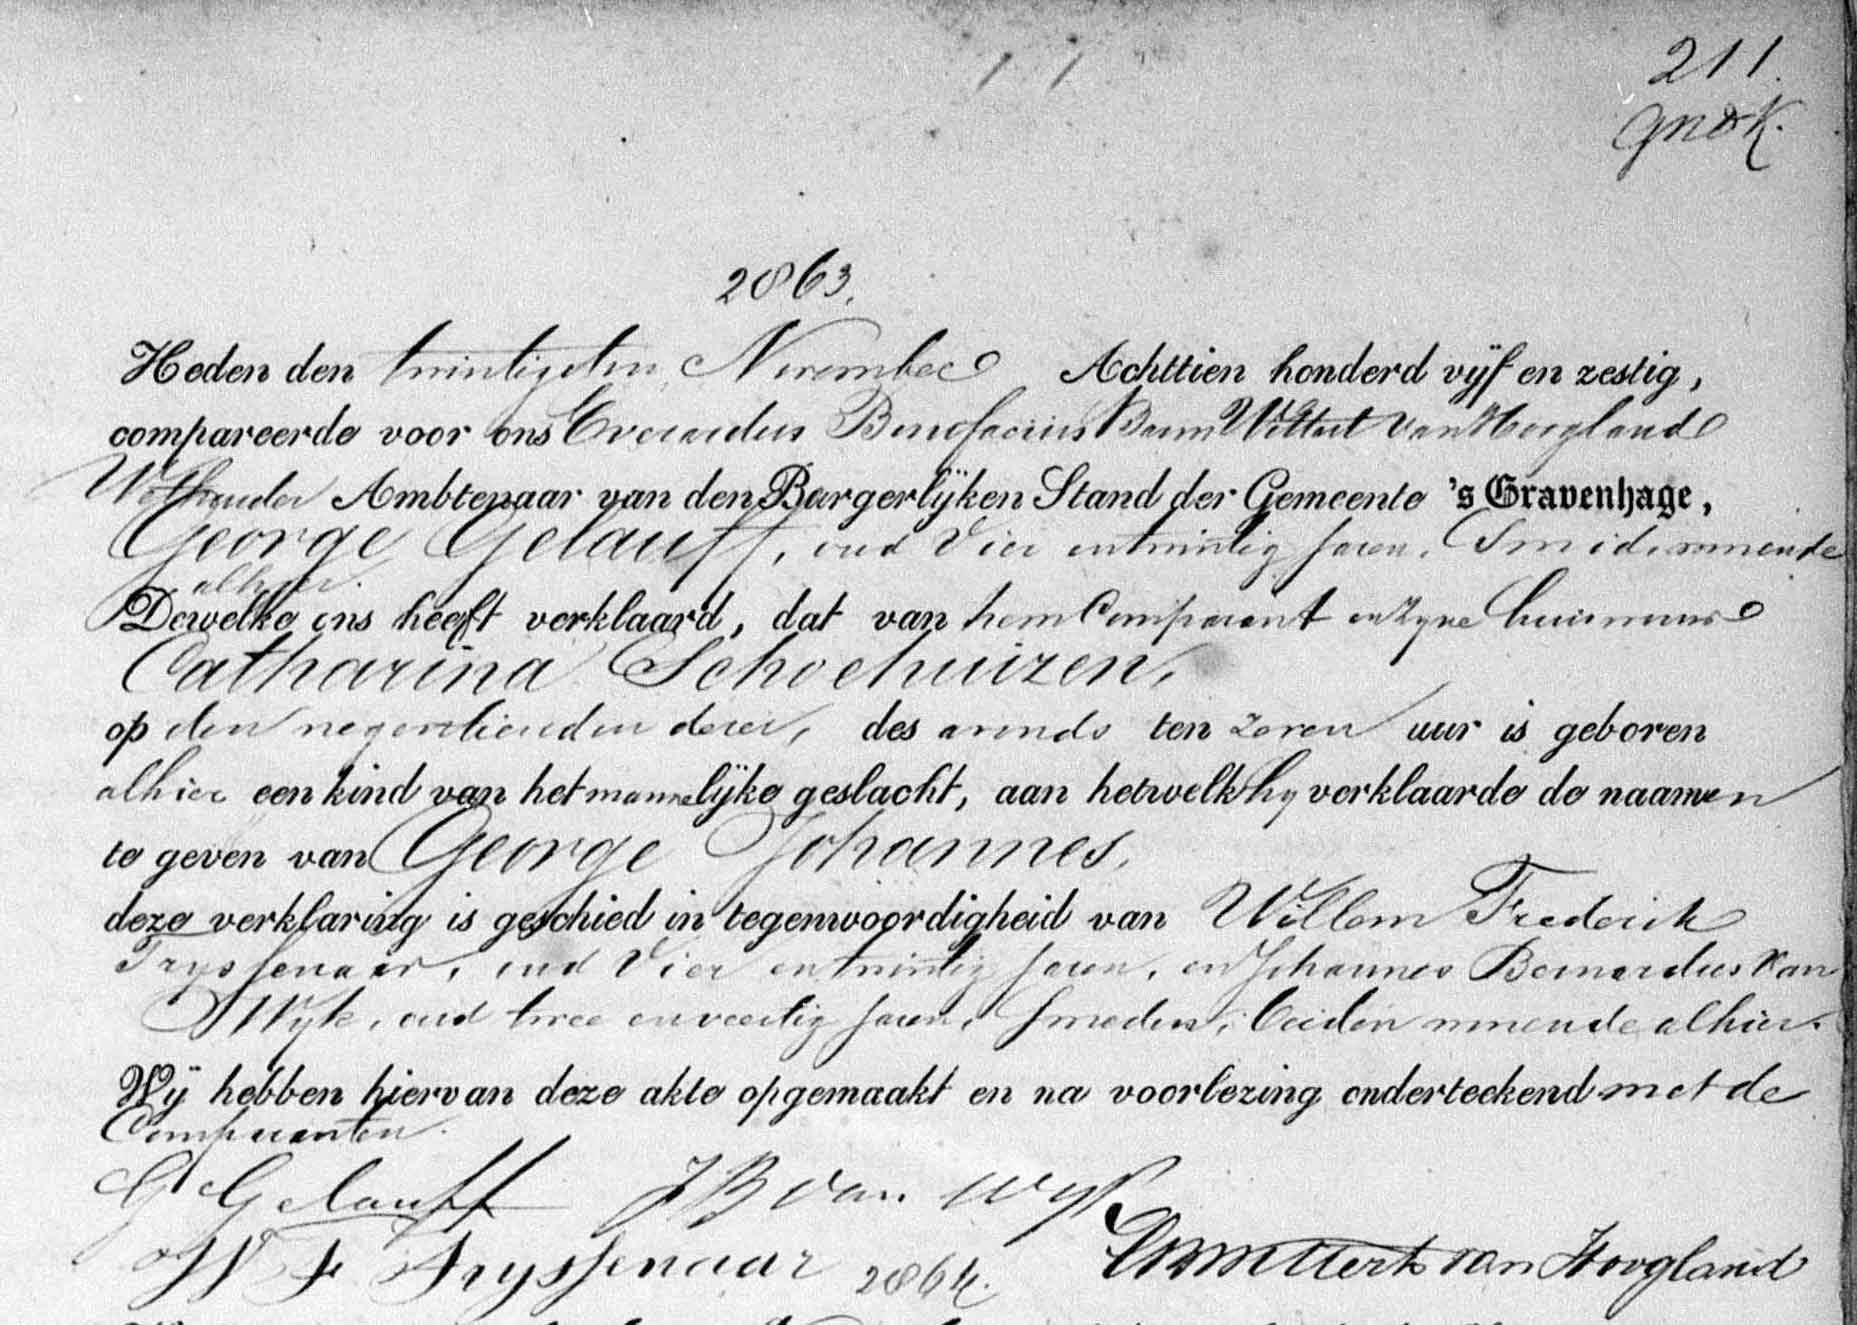 211.
2863.
Heden den twintigsten November Achttien honderd vijf en zestig,
compareerde voor ons Everardus Bonefacius Baron Wittert van Hoogland
Wethouder Ambtenaar van den Burgerlijken Stand der Gemeente 's Gravenhage,
George Gelauff, oud Vier entwintig Jaren, Smid, wonende
alhier.
Dewelke ons heeft verklaard, dat van hem Comparant en zyne huisvrouw
Catharina Schoehuizen,
op den negentienden dezer, des avonds ten zeven uur is geboren
alhier een kind van het mannelijke geslacht, aan hetwelk hy verklaarde de naamen
te geven van George Johannes,
deze verklaring is geschied in tegenwoordigheid van Willem Frederik
Fryssenaar, oud Vier entwintig Jaren, en Johannes Bernardus van
Wyk, oud twee enveertig Jaren, Smeden, beiden wonende alhier.
Wij hebben hiervan deze akte opgemaakt en na voorlezing onderteekend met de
Comparanten.
G Gelauff JB van Wyk
W F Fryssenaar 2864. Wittert van Hoogland